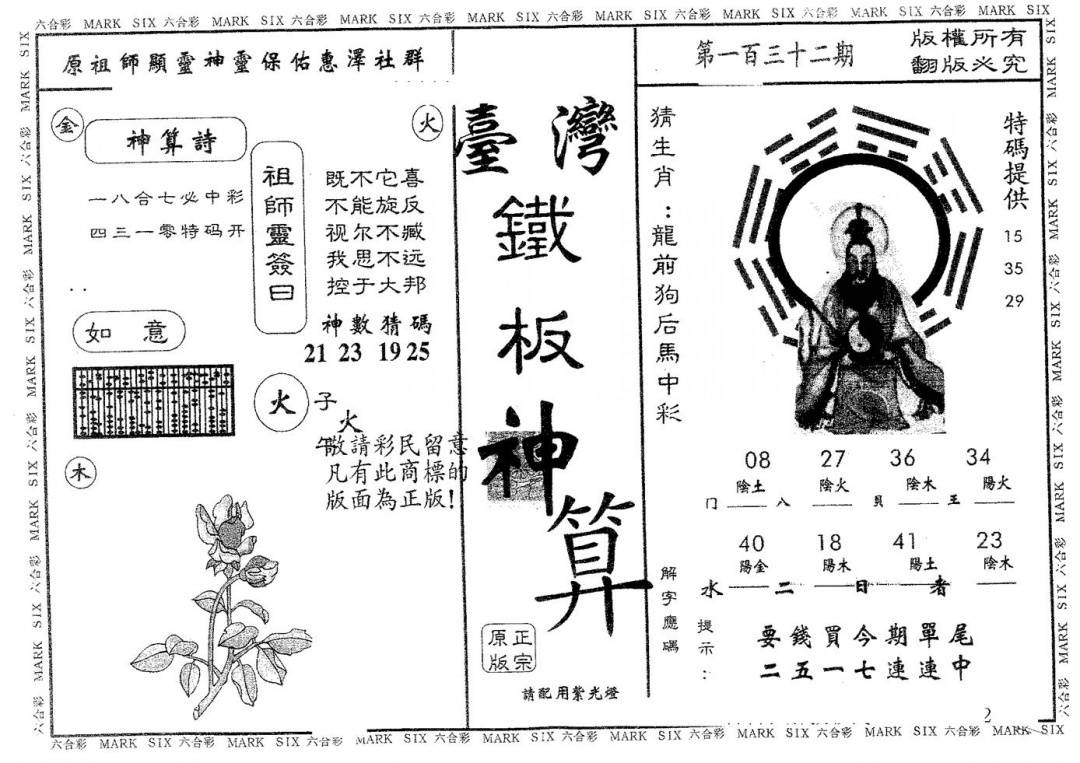 六合彩 MARK SIX 六合彩 MARK SIX 六合彩 MARK SIX 六合彩 MARK SIX 六合彩 MARK SIX 六合彩 MARK SIX 六合彩 MARK SIX 六合彩 MARK SIX
原祖師顯靈神靈保佑惠澤社群
金
神算詩
火
一八合七必中彩
四三一零特码开
祖師靈簽曰
既不它喜
不能旋反
视尔不臧
我思不远
控于大邦
神數猜碼
21 23 19 25
如意
火
子
火
午
敬請彩民留意
凡有此商標的
版面為正版!
木
臺灣
鐵
板
神
算
正宗
原版
請配用紫光燈
第一百三十二期
版權所有
翻版必究
猜生肖:龍前狗后馬中彩
特碼提供
15
35
29
08 27 36 34
陰土 陰火 陰木 陽火
门 八 貝 王
40 18 41 23
陽金 陽木 陽土 陰木
水 二 日 者
解字應碼
提示:
要錢買今期單尾
二五一七連連中
2
六合彩 MARK SIX 六合彩 MARK SIX 六合彩 MARK SIX 六合彩 MARK SIX 六合彩 MARK SIX 六合彩 MARK SIX 六合彩 MARK SIX 六合彩 MARK SIX